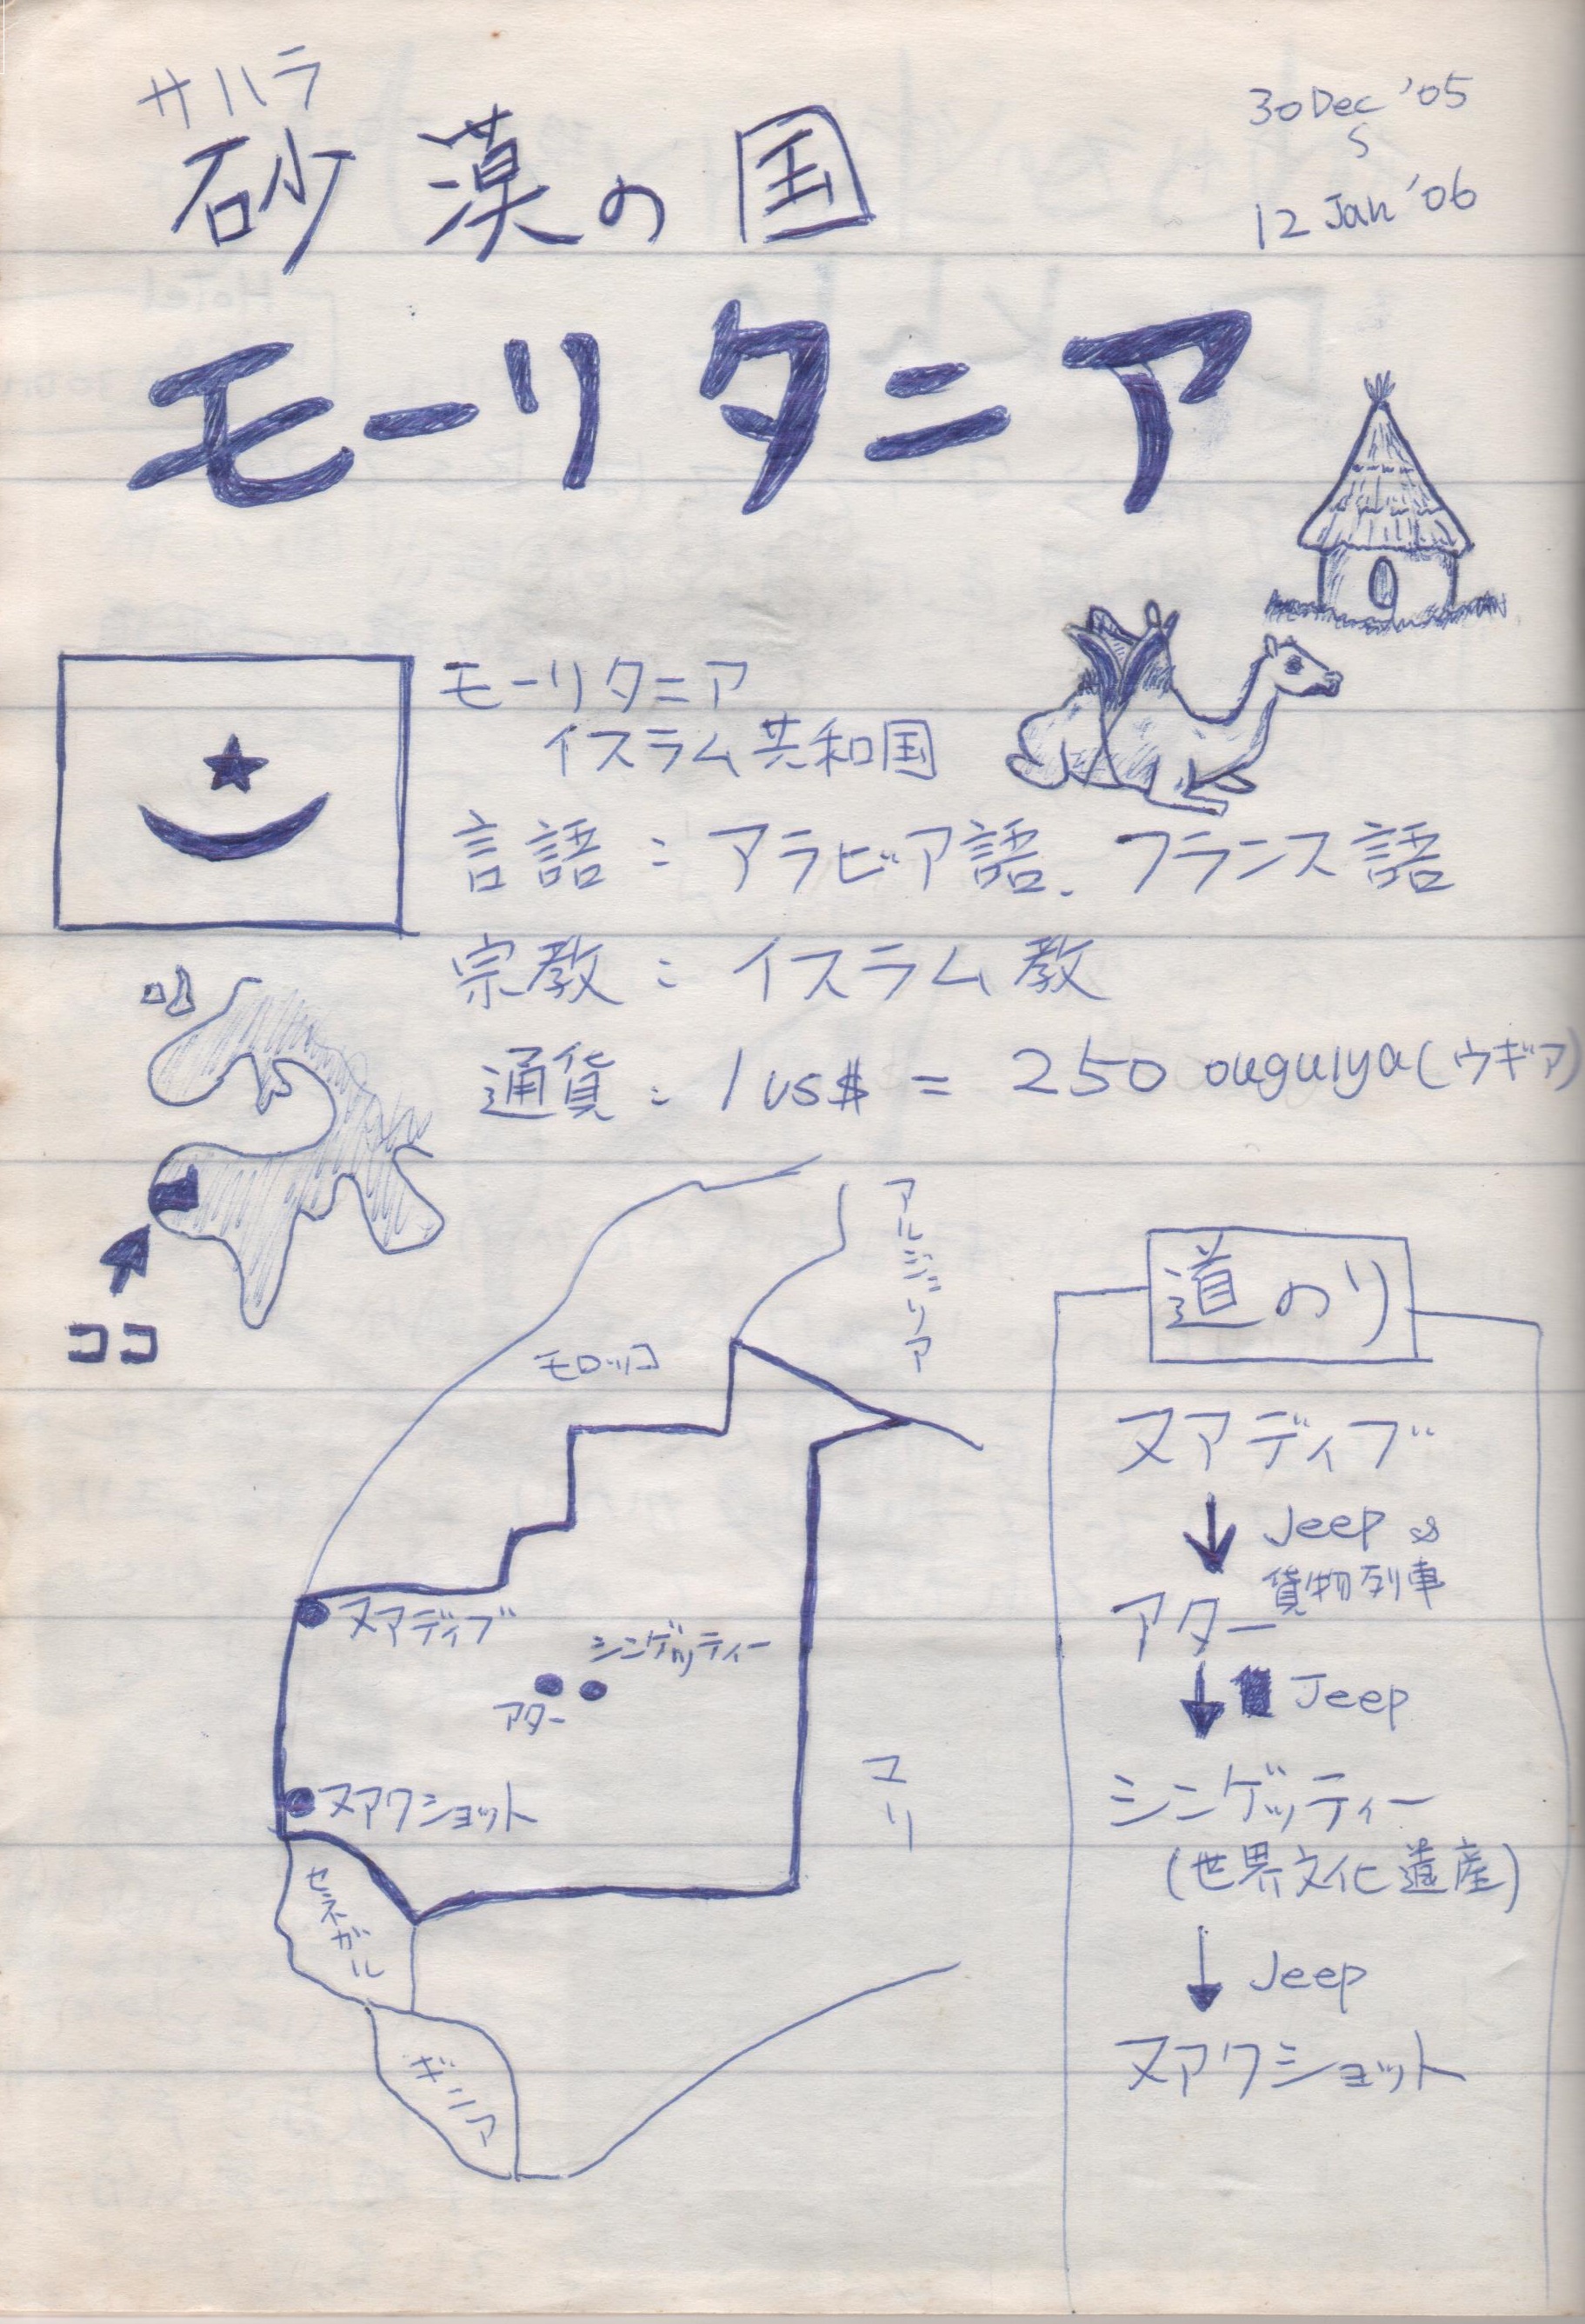 サハラ
砂漠の国
30 Dec '05
S
12 Jan '06
モーリタニア
モーリタニア
イスラム共和国
言語：アラビア語、フランス語
宗教：イスラム教
通貨：1 US$ = 250 ouguiya(ウギア)
ココ
アルジェリア
モロッコ
ヌアディブ
シンゲッティー
アター
ヌアクショット
マリ
セネガル
ギニア
道のり
ヌアディブ
Jeep &
貨物列車
アター
Jeep
シンゲッティー
(世界文化遺産)
Jeep
ヌアクショット